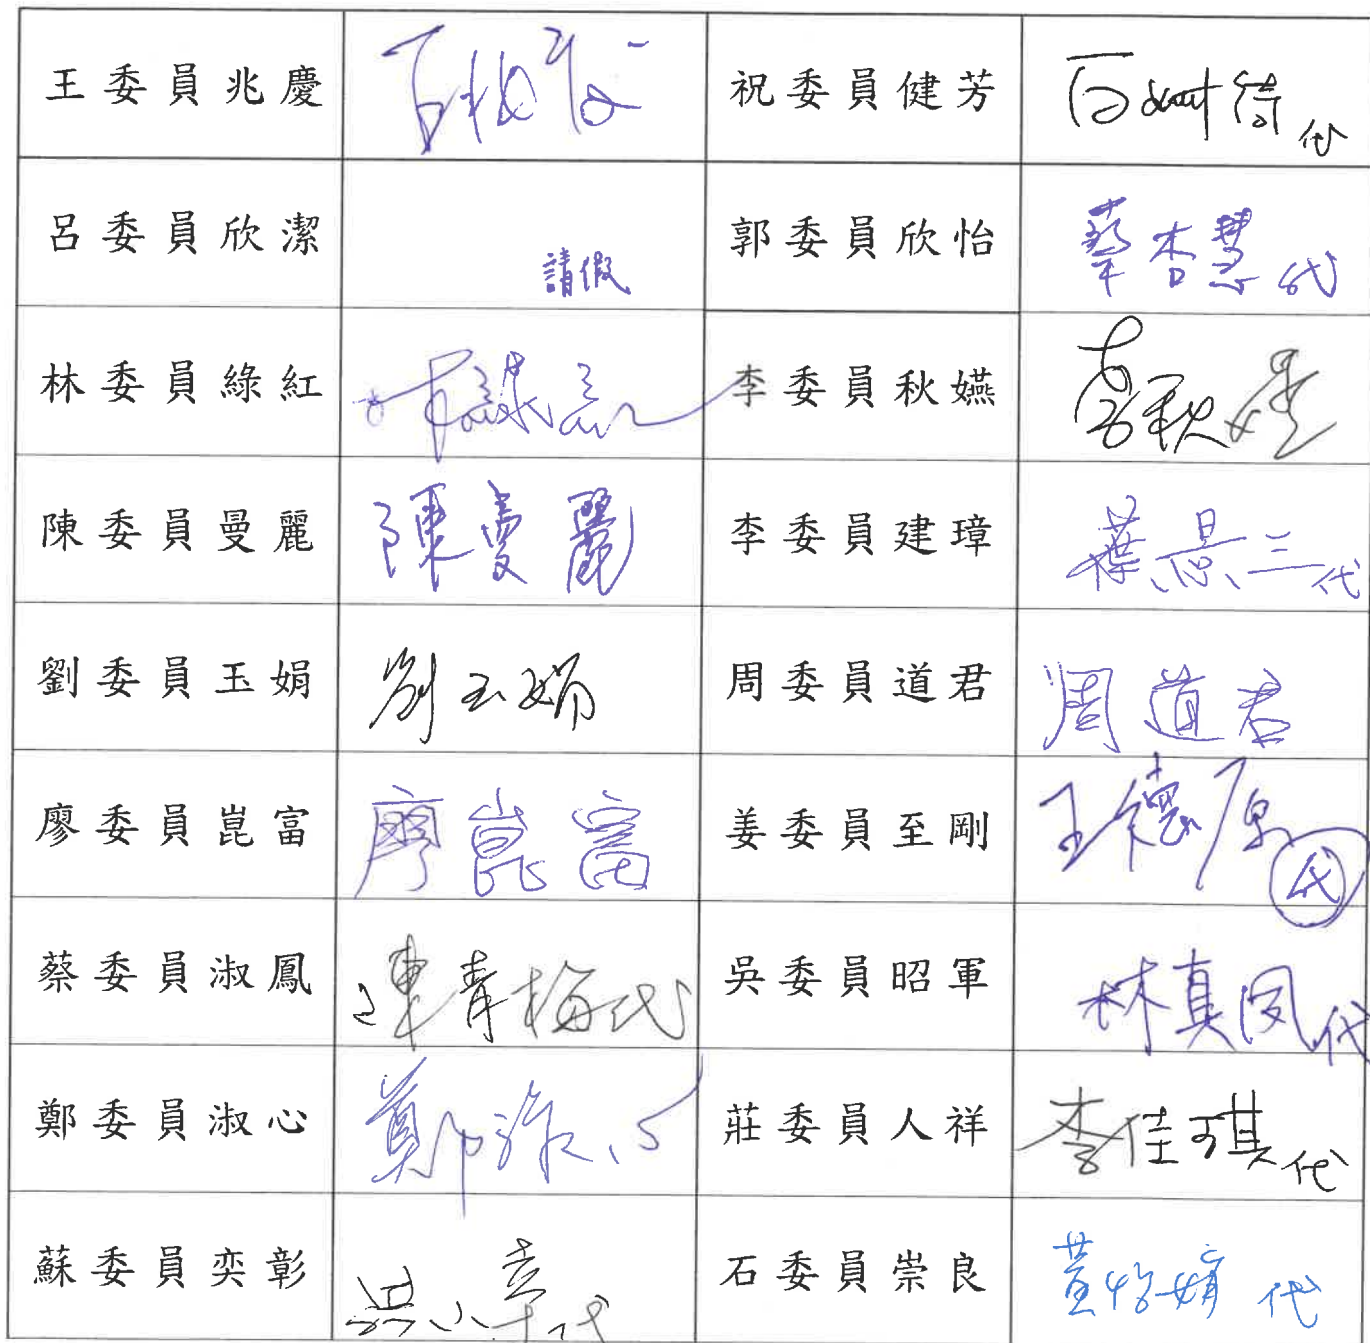 王委員兆慶 祝委員健芳 代
呂委員欣潔 請假 郭委員欣怡 蔡杏慧 代
林委員綠紅 李委員秋嬿 李秋嬿
陳委員曼麗 陳曼麗 李委員建璋 葉景三代
劉委員玉娟 劉玉娟 周委員道君 周道君
廖委員崑富 廖崑富 姜委員至剛 王德原 代
蔡委員淑鳳 陳青梅代 吳委員昭軍 林真夙代
鄭委員淑心 鄭淑心 莊委員人祥 李佳琪代
蘇委員奕彰 代 石委員崇良 黃怡娟 代